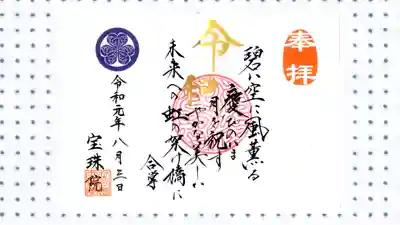 奉拝
碧い空に風薫る
慶びのいま
月を祝す
令和
やかな美しい
未来への虹の架け橋に
合掌
令和元年八月三日
宝珠院